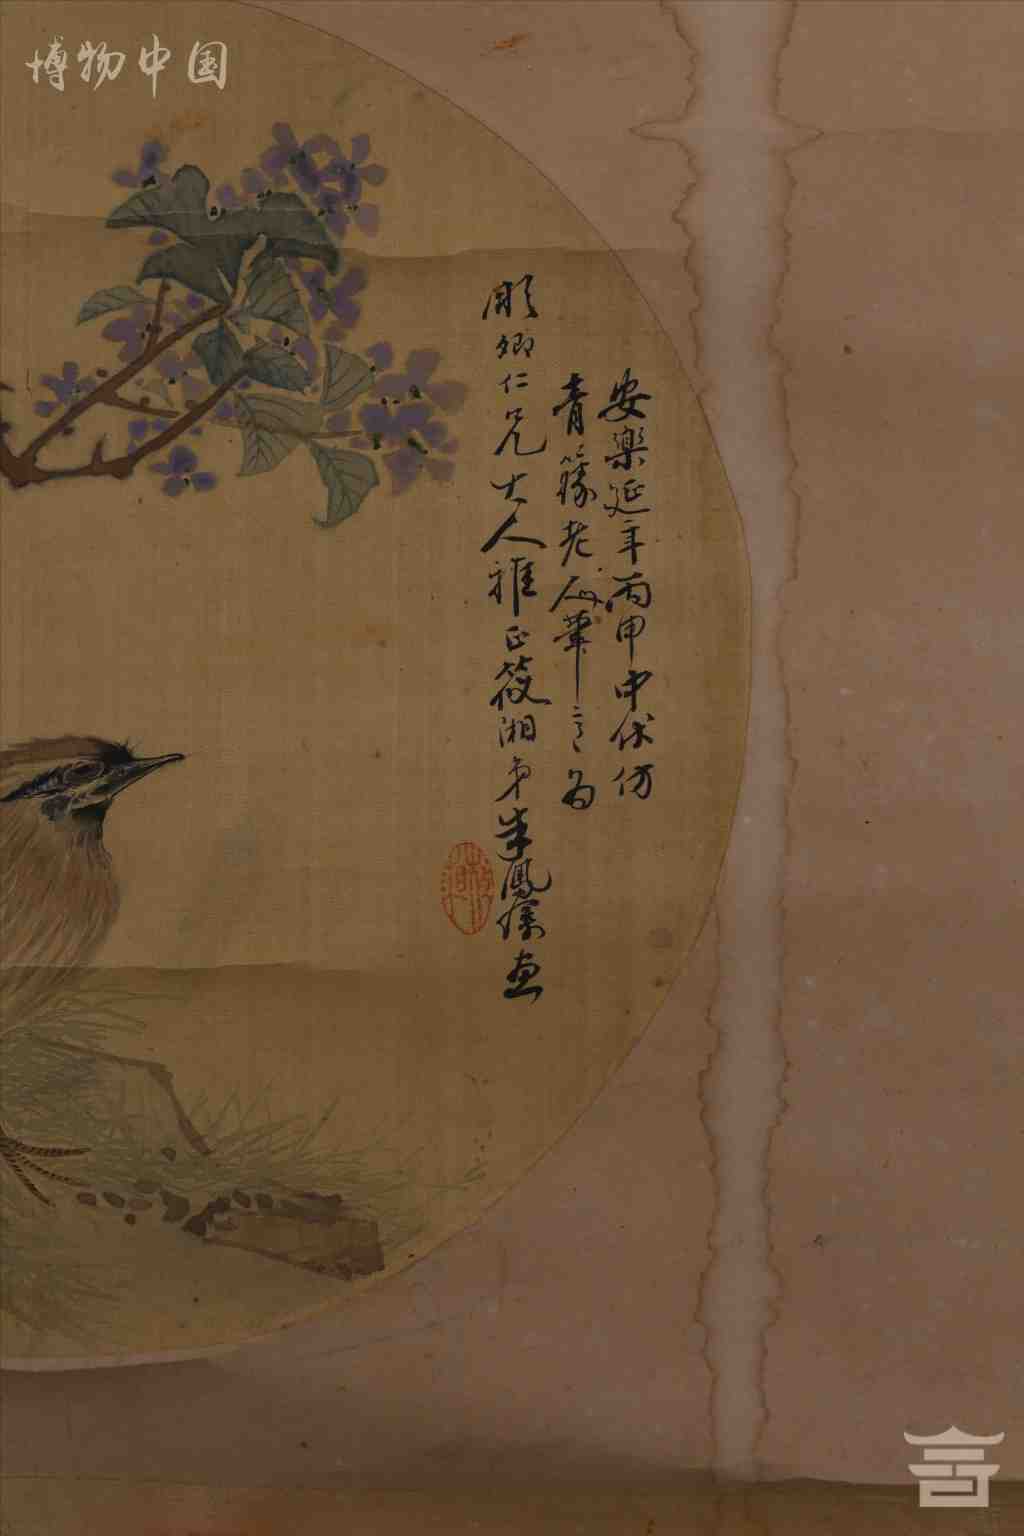 博物中国
安樂延年丙申中伏仿
青籐老人筆意為
卿仁兄大人雅正筱湘弟朱鳳画